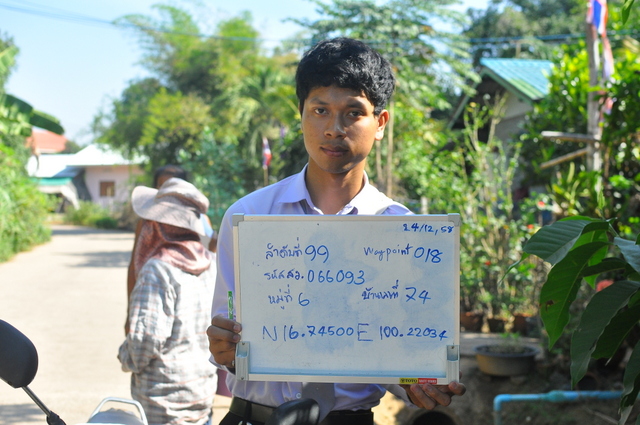 24/12/58
ลำดับที่ 99 Waypoint 018
รหัสสว. 066093
หมู่ที่ 6 บ้านเลขที่ 74
N 16.74500 E 100.22034